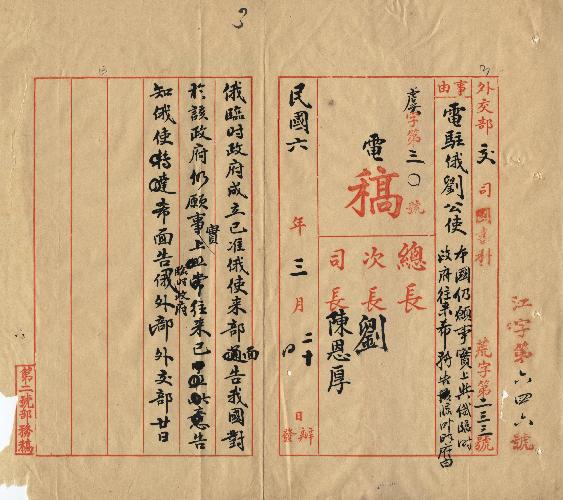 江字第六四六號
外交部 交 司 科 荒字第二三三號
事由
電駐俄劉公使
本國仍願事實上與俄臨時
政府往來希轉告該臨時政府由
虞字第三〇號
電稿
總長
次長 劉
司長 陳恩厚
民國六年三月二十日 辦發
俄臨時政府成立已准俄使來部面告我國對
於該政府仍願事實上往來已告
臨時政府
知俄使轉達希面告俄外部外交部廿日
第二號部務稿